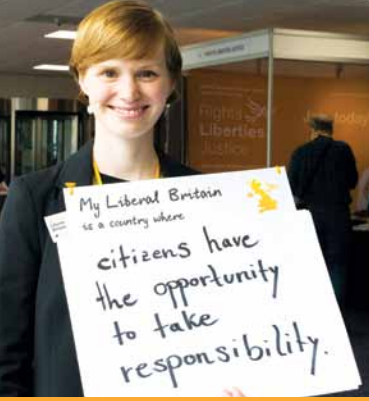 Rights
Liberties
Justice
Join today
My Liberal Britain
is a country where
citizens have
the opportunity
to take
responsibility.